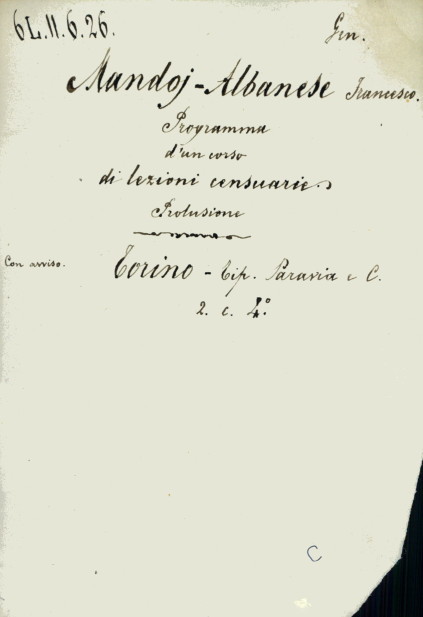 6L.11.6.26.
Gen.
Mandoj-Albanese Francesco.
Programma
d'un corso
di lezioni censuarie.
Prolusione
Con avviso.
Torino - Tip. Paravia e C.
2. c. 4.°
C